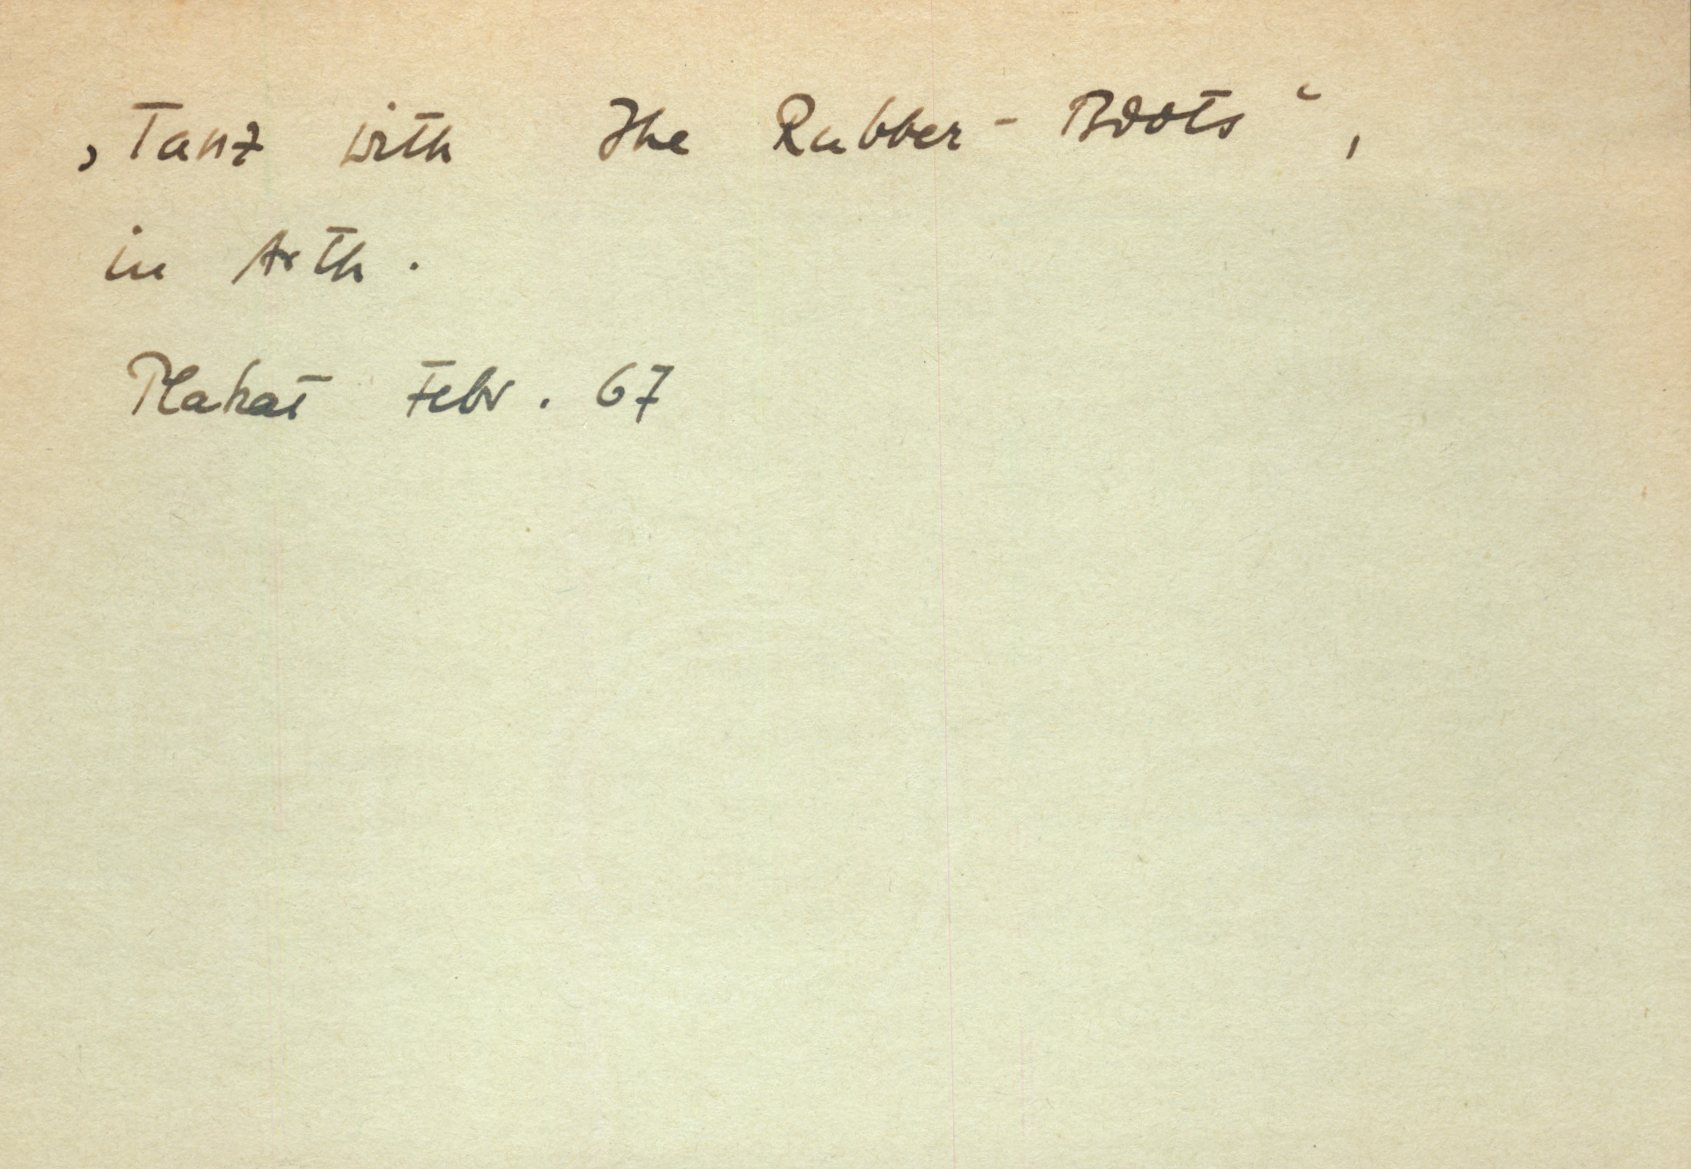 „Tanz with The Rubber-Boots“,
in Arth.
Plakat Febr. 67